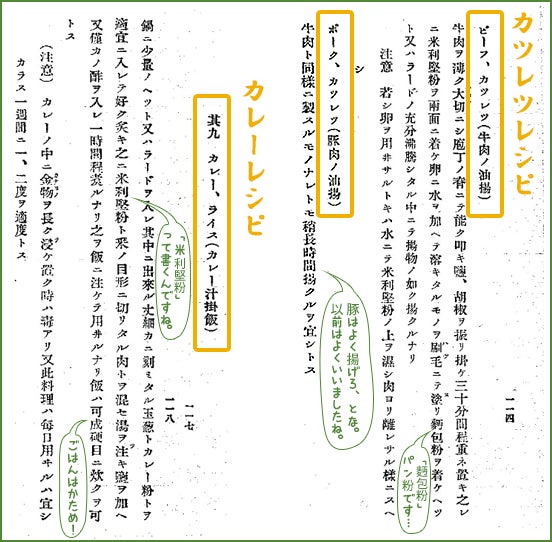 カツレツレシピ
ビーフ、カツレツ(牛肉ノ油揚)
牛肉ヲ薄ク大切ニシ庖丁ノ脊ニテ能ク叩キ鹽、胡椒ヲ振リ掛ケ三十分間程重ネ置キ之レ
ニ米利堅粉ヲ兩面ニ着ケ卵ニ水ヲ加ヘテ溶キタルモノヲ刷毛ニテ塗リ麵包粉ヲ着ケヘツ
ト又ハラードノ充分沸騰シタル中ニテ揚物ノ如ク揚クルナリ
注意 若シ卵ヲ用井サルトキハ水ニテ米利堅粉ノ上ヲ濕シ肉ヨリ離レサル樣ニスヘ
シ
一一四
「麵包粉」
パン粉です…
ポーク、カツレツ(豚肉ノ油揚)
牛肉ト同樣ニ製スルモノナレトモ稍長時間揚クルヲ宜シトス
豚はよく揚げろ、とな。
以前はよくいいましたね。
カレーレシピ
其九 カレー、ライス(カレー汁掛飯)
一一七
一一八
鍋ニ少量ノヘット又ハラードヲ入レ其中ニ出來ル丈細カニ刻ミタル玉葱トカレー粉トヲ
適宜ニ入レテ好ク炙キ之ニ米利堅粉ト釆ノ目形ニ切リタル肉トヲ混セ湯ヲ注キ鹽ヲ加ヘ
又僅カノ酢ヲ入レ一時間程煮ルナリ之ヲ飯ニ注ケテ用井ルナリ飯ハ可成硬目ニ炊クヲ可
トス
「米利堅粉」
って書くんですね。
ごはんはかため!
(注意) カレーノ中ニ金物ヲ長ク浸ケ置ク時ハ毒アリ又此料理ハ毎日用井ルハ宜シ
カラス一週間ニ一、二度ヲ適度トス